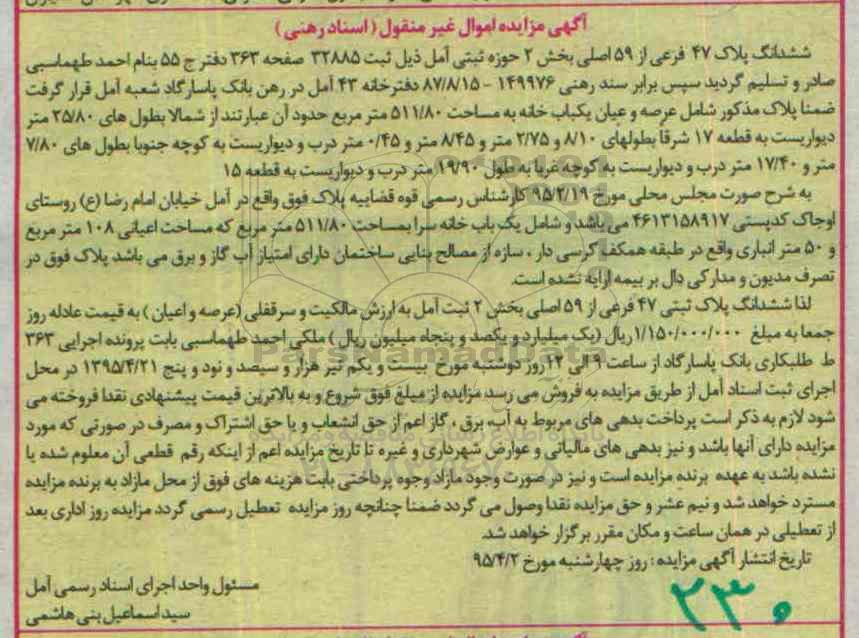 آگهی مزایده اموال غیر منقول ( اسناد رهنی )
ششدانگ پلاک ۴۷ فرعی از ۵۹ اصلی بخش ۲ حوزه ثبتی آمل ذیل ثبت ۳۲۸۸۵ صفحه ۳۶۳ دفتر ج ۵۵ بنام احمد طهماسبی
صادر و تسلیم گردید سپس برابر سند رهنی ۱۴۹۹۷۶ - ۸۷/۸/۱۵ دفترخانه ۴۳ آمل در رهن بانک پاسارگاد شعبه آمل قرار گرفت
ضمنا پلاک مذکور شامل عرصه و عیان یکباب خانه به مساحت ۵۱۱/۸۰ متر مربع حدود آن عبارتند از شمالا بطول های ۲۵/۸۰ متر
دیواریست به قطعه ۱۷ شرقاً بطولهای ۸/۱۰ و ۲/۷۵ متر و ۸/۴۵ متر و ۰/۴۵ متر درب و دیواریست به کوچه جنوبا بطول های ۷/۸۰
متر و ۱۷/۴۰ متر درب و دیواریست به کوچه غربا به طول ۱۹/۹۰ متر درب و دیواریست به قطعه ۱۵
به شرح صورت مجلس محلی مورخ ۹۵/۲/۱۹ کارشناس رسمی قوه قضاییه پلاک فوق واقع در آمل خیابان امام رضا (ع) روستای
اوجاک کدپستی ۴۶۱۳۱۵۸۹۱۷ می باشد و شامل یک باب خانه سرا بمساحت ۵۱۱/۸۰ متر مربع که مساحت اعیانی ۱۰۸ متر مربع
و ۵۰ متر انباری واقع در طبقه همکف کرسی دار ، سازه از مصالح بنایی ساختمان دارای امتیاز آب گاز و برق می باشد پلاک فوق در
تصرف مدیون و مدارکی دال بر بیمه ارایه نشده است.
لذا ششدانگ پلاک ثبتی ۴۷ فرعی از ۵۹ اصلی بخش ۲ ثبت آمل به ارزش مالکیت و سرقفلی (عرصه و اعیان ) به قیمت عادله روز
جمعا به مبلغ ۱/۱۵۰/۰۰۰/۰۰۰ ریال (یک میلیارد و یکصد و پنجاه میلیون ریال ) ملکی احمد طهماسبی بابت پرونده اجرایی ۳۶۳
ط طلبکاری بانک پاسارگاد از ساعت ۹ الی ۱۲ روز دوشنبه مورخ بیست و یکم تیر هزار و سیصد و نود و پنج ۱۳۹۵/۴/۲۱ در محل
اجرای ثبت اسناد آمل از طریق مزایده به فروش می رسد مزایده از مبلغ فوق شروع و به بالاترین قیمت پیشنهادی نقدا فروخته می
شود لازم به ذکر است پرداخت بدهی های مربوط به آب، برق ، گاز اعم از حق انشعاب و یا حق اشتراک و مصرف در صورتی که مورد
مزایده دارای آنها باشد و نیز بدهی های مالیاتی و عوارض شهرداری و غیره تا تاریخ مزایده اعم از اینکه رقم قطعی آن معلوم شده یا
نشده باشد به عهده برنده مزایده است و نیز در صورت وجود مازاد وجوه پرداختی بابت هزینه های فوق از محل مازاد به برنده مزایده
مسترد خواهد شد و نیم عشر و حق مزایده نقدا وصول می گردد ضمنا چنانچه روز مزایده تعطیل رسمی گردد مزایده روز اداری بعد
از تعطیلی در همان ساعت و مکان مقرر برگزار خواهد شد.
تاریخ انتشار آگهی مزایده : روز چهارشنبه مورخ ۹۵/۴/۲
مسئول واحد اجرای اسناد رسمی آمل
سید اسماعیل بنی هاشمی
۲۳۰
ParsNamadData